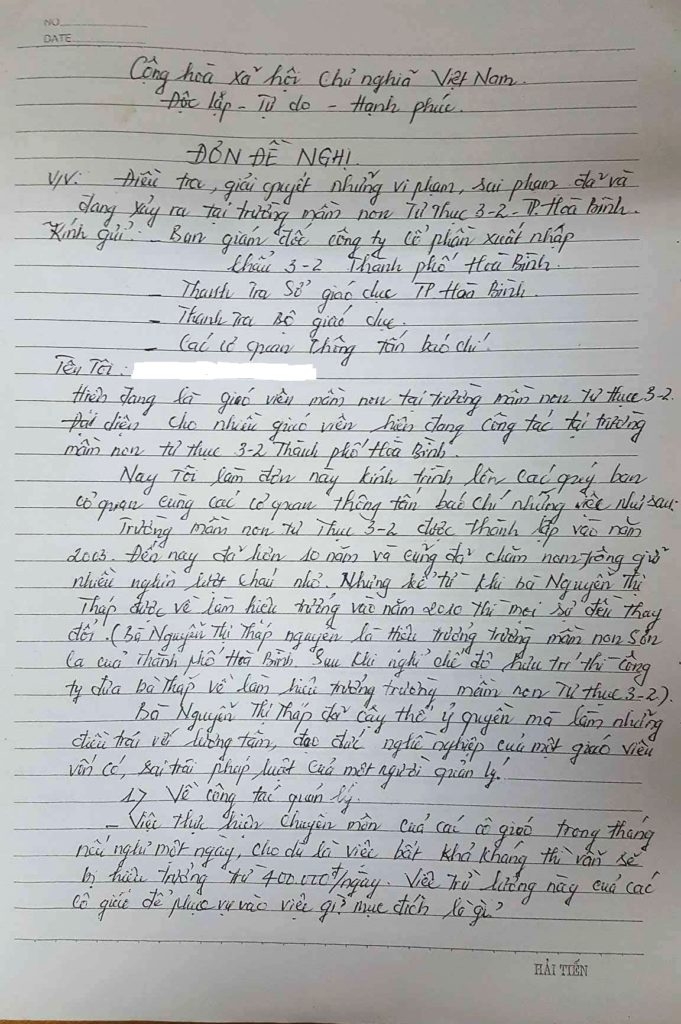 NO
DATE
Cộng hoà xã hội Chủ nghĩa Việt Nam.
Độc lập - Tự do - Hạnh phúc.
ĐƠN ĐỀ NGHỊ
V/v: Điều tra, giải quyết những vi phạm, sai phạm đã và
đang xảy ra tại trường mầm non Tư thục 3-2 - TP. Hoà Bình.
Kính gửi: - Ban giám đốc công ty cổ phần xuất nhập
khẩu 3-2 Thành phố Hoà Bình.
- Thanh Tra Sở giáo dục TP Hoà Bình.
- Thanh Tra Bộ giáo dục.
- Các cơ quan thông tấn báo chí.
Tên Tôi:
Hiện đang là giáo viên mầm non tại trường mầm non tư thục 3-2.
Đại diện cho nhiều giáo viên hiện đang công tác tại trường
mầm non tư thục 3-2 Thành phố Hoà Bình.
Nay Tôi làm đơn này kính trình lên các quý ban
cơ quan cùng các cơ quan thông tấn báo chí những việc như sau:
Trường mầm non tư Thục 3-2 được thành lập vào năm
2003. Đến nay đã hơn 10 năm và cũng đã chăm nom trông giữ
nhiều nghìn lượt cháu nhỏ. Nhưng kể từ khi bà Nguyễn Thị
Thấp được về làm hiệu trưởng vào năm 2010 thì mọi sự đều thay
đổi. (Bà Nguyễn Thị Thấp nguyên là hiệu trưởng trường mầm non Sơn
la của Thành phố Hoà Bình. Sau khi nghỉ chế độ hưu trí thì công
ty đưa bà Thấp về làm hiệu trưởng trường mầm non Tư thục 3-2).
Bà Nguyễn Thị Thấp đã cậy thế ỷ quyền mà làm những
điều trái với lương tâm, đạo đức nghề nghiệp của một giáo viên
vốn có, sai trái pháp luật của một người quản lý.
1) Về công tác quản lý.
- Việc thực hiện chuyên môn của các cô giáo trong tháng
nếu nghỉ một ngày, cho dù là việc bất khả kháng thì vẫn sẽ
bị hiệu trưởng trừ 400.000đ/ngày. Việc trừ lương này của các
cô giáo để phục vụ vào việc gì? mục đích là gì?
HẢI TIẾN